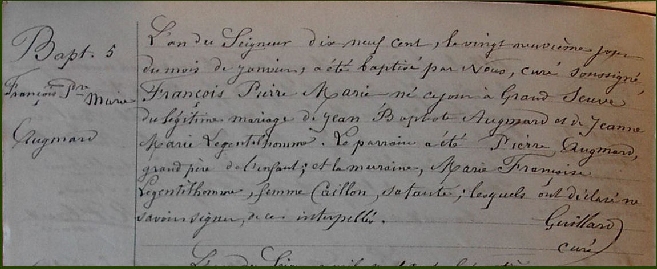 Bapt. 5
François Pre Marie
Augmard
L'an du Seigneur dix neuf cent, le vingt neuvième jour
du mois de janvier, a été baptisé par Nous, curé soussigné
François Pierre Marie né ce jour à Grand
du légitime mariage de Jean Baptiste Augmard et de Jeanne
Marie Legentilhomme. Le parrain a été Pierre Augmard,
grand père de l'enfant; et la marraine, Marie Françoise
Legentilhomme, femme Caillon, sa tante; lesquels ont déclaré ne
savoir signer, de ce interpellés.
Guillard
curé